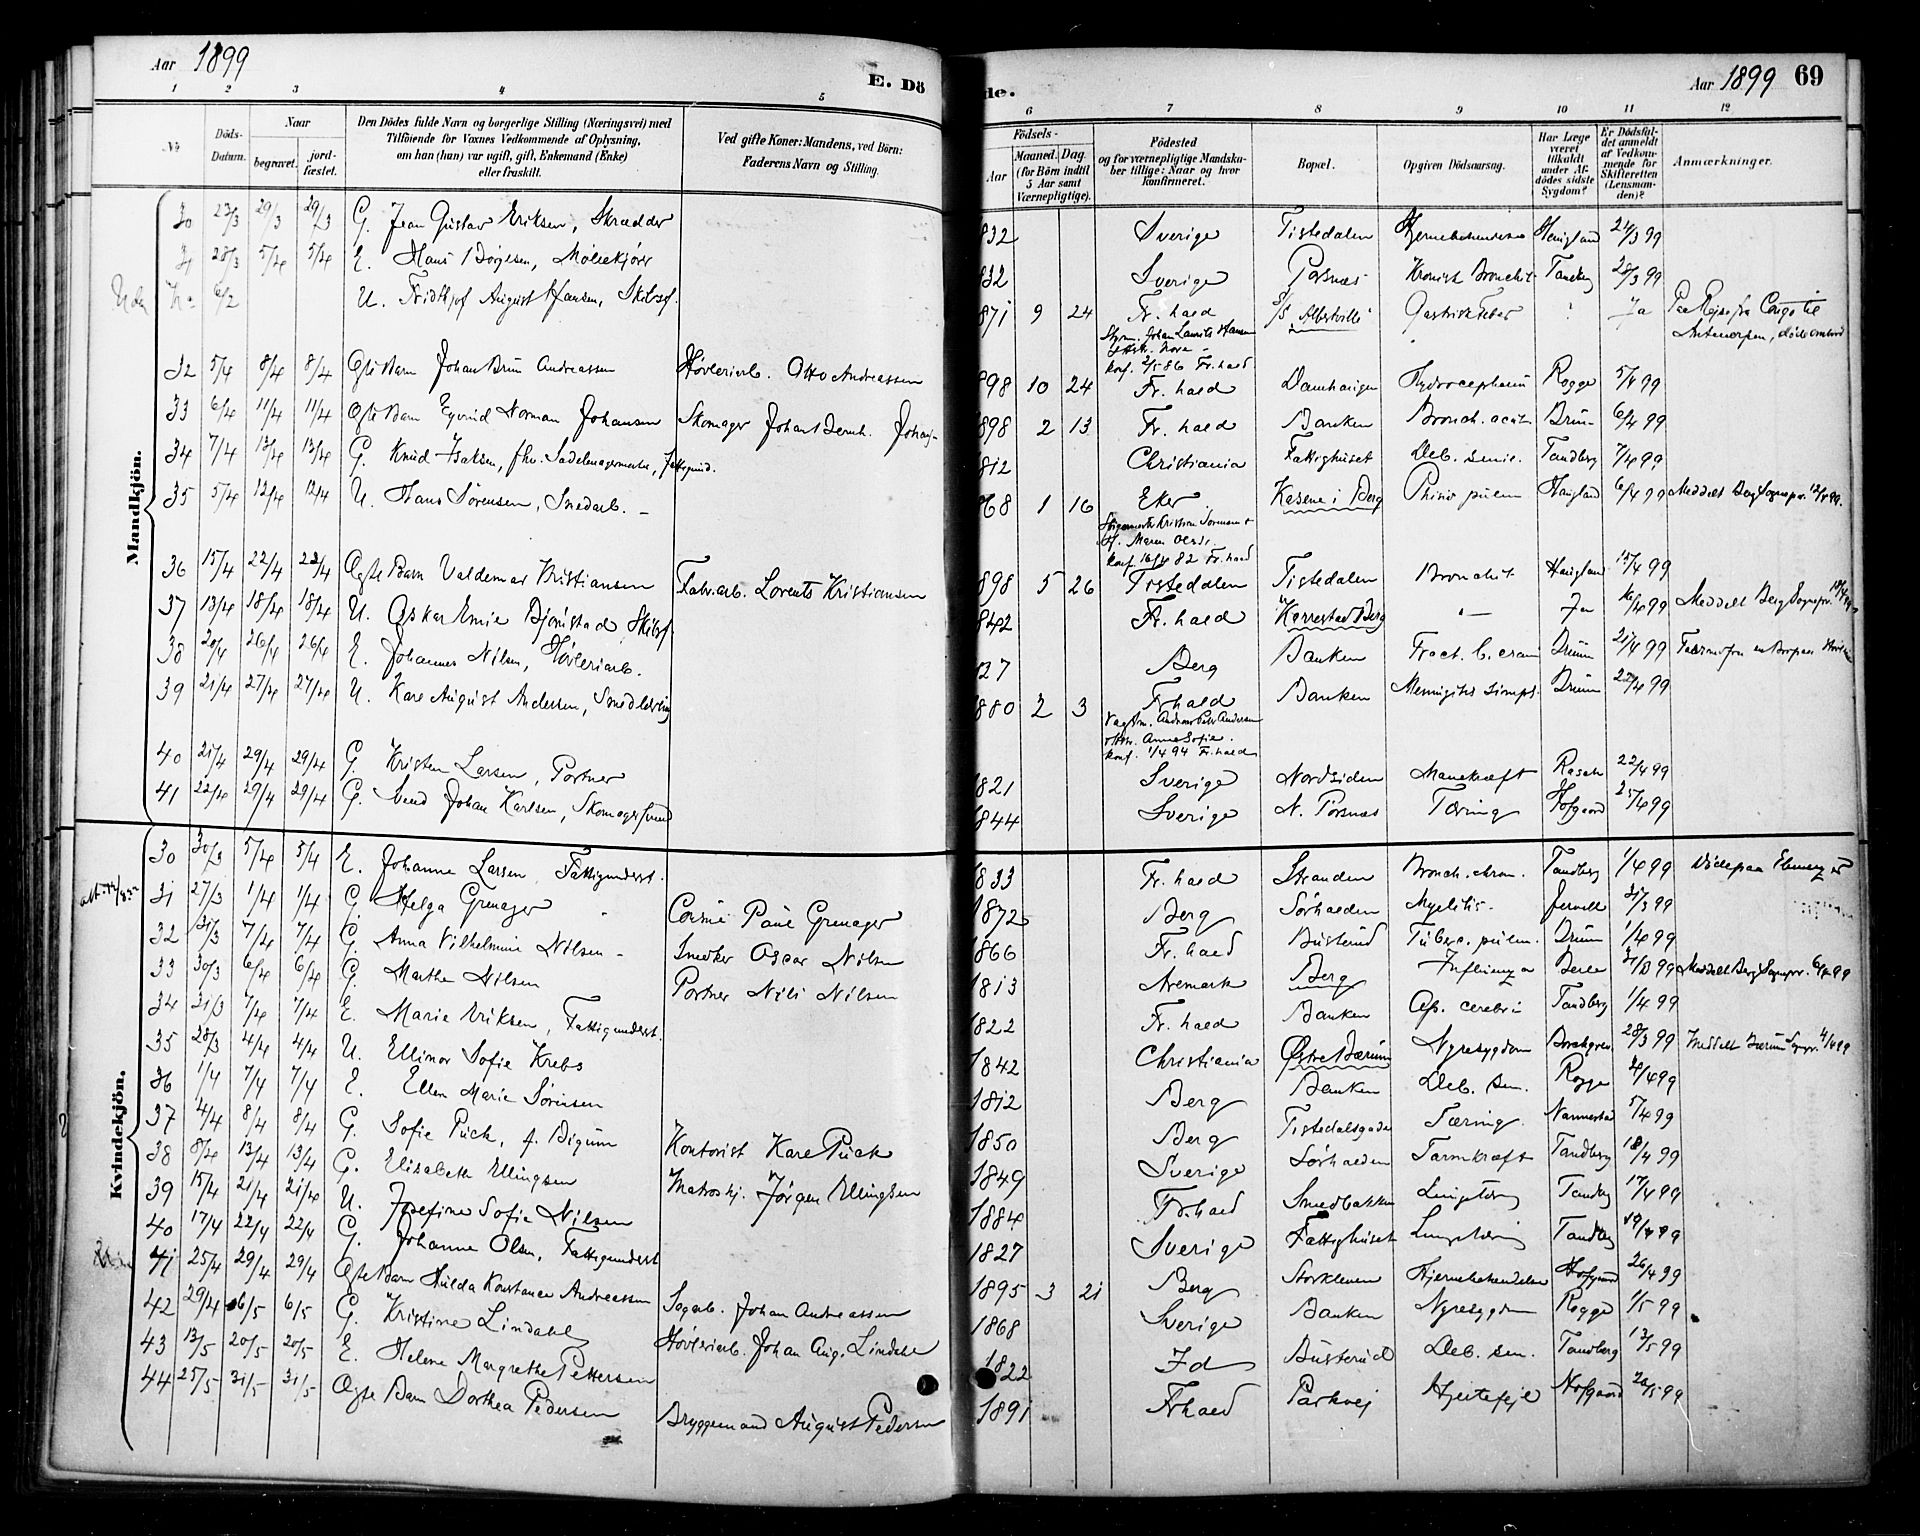 Aar 1899
E. Dö
de.
Aar 1899 69
1 2 3 4 5
6 7 8 9 10 11 12
No
Döds-Datum.
Naar
begravet.
jord-fæstet.
Den Dödes fulde Navn og borgerlige Stilling (Næringsvei) med
Tilföiende for Voxnes Vedkommende af Oplysning,
om han (hun) var ugift, gift, Enkemand (Enke)
eller fraskilt.
Ved gifte Koner: Mandens, ved Börn:
Faderens Navn og Stilling.
Födsels-
Aar
Maaned. Dag.
(for Börn indtil
5 Aar samt
Værnepligtige).
Födested
og for værnepligtige Mandska-
ber tillige: Naar og hvor
konfirmeret.
Bopæl.
Opgiven Dödsaarsag.
Har Læge
været
tilkaldt
under Af-
dödes sidste
Sygdom?
Er Dödsfal-
det anmeldt
af Vedkom-
mende for
Skifteretten
(Lensman-
den)?
Anmærkninger.
Mandkjön.
30 23/3 29/3 29/3 G. Jean Gustav Eriksen, Skrædder 832 Sverige Tistedalen Haugland 24/3 99
31 28/3 5/4 5/4 E. Hans Börgesen, Möllekjörer 832 Sverige Porsnæs Kronisk Bronchit 28/3 99
6/2 U. Fridthjof August Hansen, Skibsf. 871 9 24 Fr.hald S/S Albertville Gastrisk Feber ? Ja Paa Rejse fra Congo til
Antwerpen, döde ombord
Styrm. Johan Laurits Hansen
konf. 2/5 86 Fr.hald
32 5/4 8/4 8/4 Ægte Barn Johan Brun Andreassen Høvleriarb. Otto Andreassen 898 10 24 Fr. hald Damhaugen Hydrocephalus Rogge 5/4 99
33 6/4 11/4 11/4 Ægte Barn Eyvind Norman Johansen Skomager Johan Bernh. Johans- 898 2 13 Fr. hald Banken Bronch. acut. Bruun 6/4 99
34 7/4 13/4 13/4 G. Knud Isaksen, fhv. Sadelmagermester, Fattigund. 812 Christiania Fattighuset Deb. senil. Tandberg 7/4 99
35 5/4 12/4 12/4 U. Hans Sörensen, Smedarb. 868 1 16 Eker Kasene i Berg Phtisis pulm Haugland 6/4 99 Meddelt Berg Sognepr. 12/4 99.
konf. 16/4 82 Fr.hald
36 15/4 22/4 22/4 Ægte Barn Valdemar Kristiansen Fabr.arb. Lorents Kristiansen 898 5 26 Tistedalen Tistedalen Bronchit Haugland 15/4 99
37 13/4 18/4 18/4 U. Oskar Emil Bjørnstad, Skibsf. 842 Fr.hald Kærrestad i Berg "— Ja 16/4 99 Meddelt Berg Sognepr. 18/4 99
38 20/4 26/4 26/4 E. Johannes Nilsen, Høvleriarb. 827 Berg Banken Fract. b. cranii Bruun 21/4 99
39 21/4 27/4 27/4 U. Karl August Andersen, Smedlærling 880 2 3 Fr.hald Banken Meningitis simpl. Bruun 22/4 99
Vagtm. Andreas Peter Andersen
o. Hstr. Anne Sofie
konf. 1/4 94 Fr.hald
40 21/4 29/4 29/4 G. Kristen Larsen, Portner 821 Sverige Nordsiden Mavekræft Rasch 22/4 99
41 22/4 29/4 29/4 G. Svend Johan Karlsen, Skomagersvend 844 Sverige N. Porsnæs Tæring Hofgaard 25/4 99
Kvindekjön.
30 30/3 5/4 5/4 E. Johanne Larsen, Fattigunderst. 833 Fr.hald Stranden Bronch. chron. Tandberg 1/4 99
31 27/3 1/4 1/4 G. Helga Grenager Paul Grenager 1872 Berg Sørhalden Myelitis. Jervell 30/3 99
32 31/3 7/4 7/4 G. Anna Vilhelmine Nilsen Snedker Oscar Nilsen 1866 Fr. hald Busterud Tuberc. pulm. Bruun 1/4 99
33 30/3 6/4 6/4 G. Marthe Nilsen Portner Nils Nilsen 1813 Aremark Berg Influenza 99 Meddelt Berg Sognepr. 6/4 99
34 31/3 7/4 7/4 E. Marie Eriksen, Fattigunderst. 1822 Fr. hald Banken Ap. cerebri Tandberg 1/4 99
35 28/3 4/4 4/4 U. Ellinor Sofie Krebs 1842 Christiania Østre Bærum Nyresygdom Borchgrev. 28/3 99 Meddelt Bærum Sognepr. 4/4 99
36 1/4 7/4 7/4 E. Ellen Marie Sörensen 1812 Berg Banken Deb. sen. Rogge 4/4 99
37 4/4 8/4 8/4 G. Sofie Puck, f. Bigum Kontorist Karl Puck 1850 Berg Tistedalsgaden Tæring Nannestad 5/4 99
38 8/4 13/4 13/4 G. Elisabeth Ellingsen Matros hj. Jörgen Ellingsen 1849 Sverige Sørhalden Tarmkræft Tandberg 18/4 99
39 15/4 21/4 21/4 U. Josefine Sofie Nilsen 1884 Fr.hald Smedbakken Lungetæring Tandbg 17/4 99
40 17/4 22/4 22/4 G. Johanne Olsen, Fattigunderst 1827 Sverige Fattighuset Lungetæring Tandbg 19/4 99
41 25/4 29/4 29/4 Ægte Barn Hulda Konstance Andreassen Sagarb. Johan Andreassen 1895 3 21 Berg Storkleven Hjernebetændelse Hofgaard 26/4 99
42 29/4 6/5 6/5 G. Kristine Lindahl Høvleriarb. Johan Aug. Lindahl 1868 Sverige Banken Nyresygdom Rogge 1/5 99
43 13/5 20/5 20/5 E. Helene Margrethe Pettersen 1822 Id Busterud Deb. sen. Tandberg 13/5 99
44 25/5 31/5 31/5 Ægte Barn Dorthea Pedersen Bryggemand August Pedersen 1891 Fr.hald Parkvej Hjertefejl Hofgaard 26/5 99